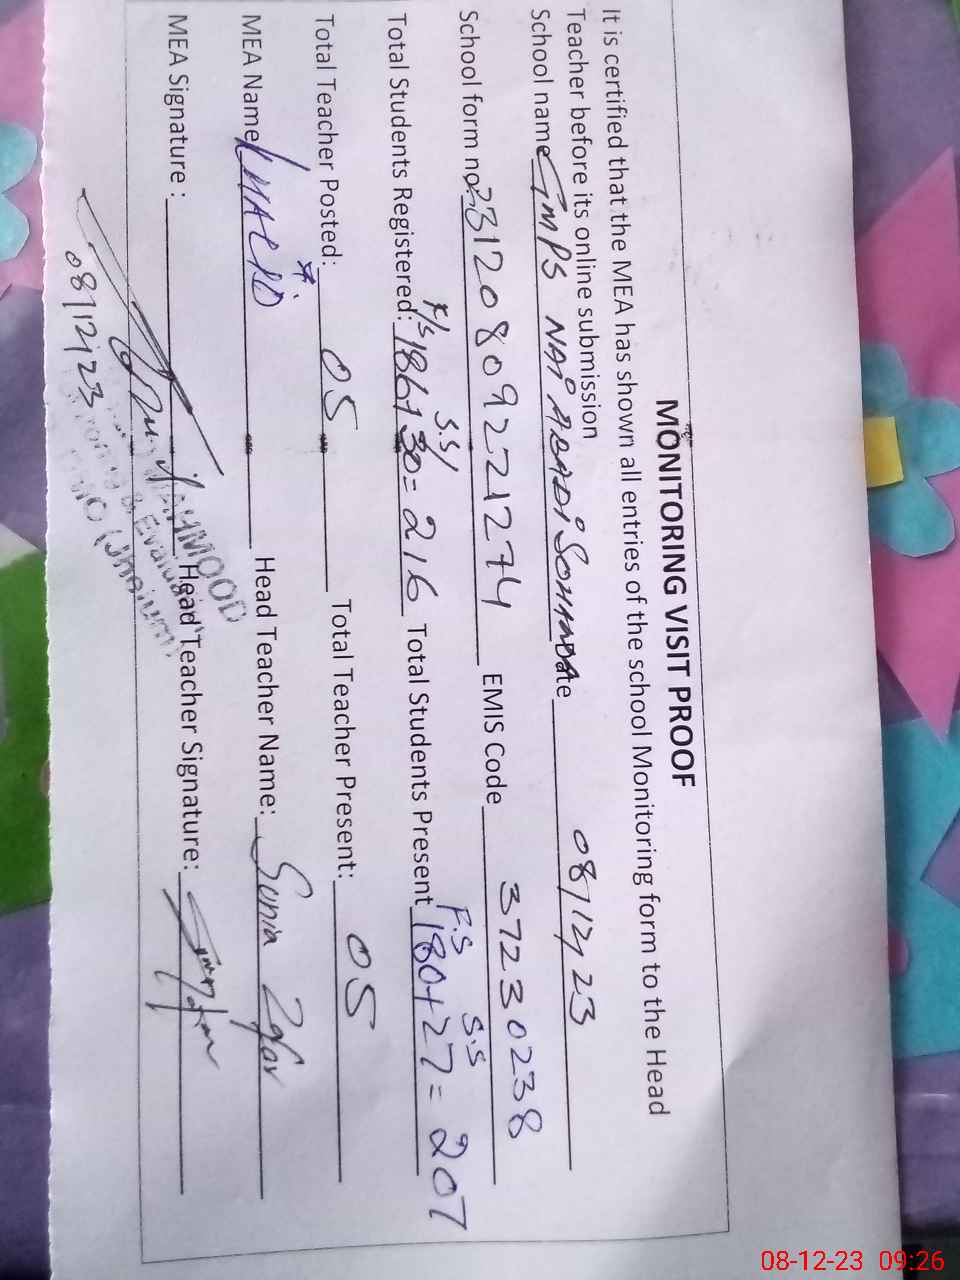 MONITORING VISIT PROOF
It is certified that the MEA has shown all entries of the school Monitoring form to the Head
Teacher before its online submission
School name GMPS NAI ABADI SOHAWA Date 08/12/23
School form no. 231208092221274 EMIS Code 37230238
F/S S.S/ F.S S.S
Total Students Registered: 186+30=216 Total Students Present 180+27=207
Total Teacher Posted: 05 Total Teacher Present: 05
MEA Name KHALID Head Teacher Name: Sonia Zafar
MEA Signature : Head Teacher Signature:
MAHMOOD
08/12/23
& Evalua
(Jhelum)
08-12-23 09:26